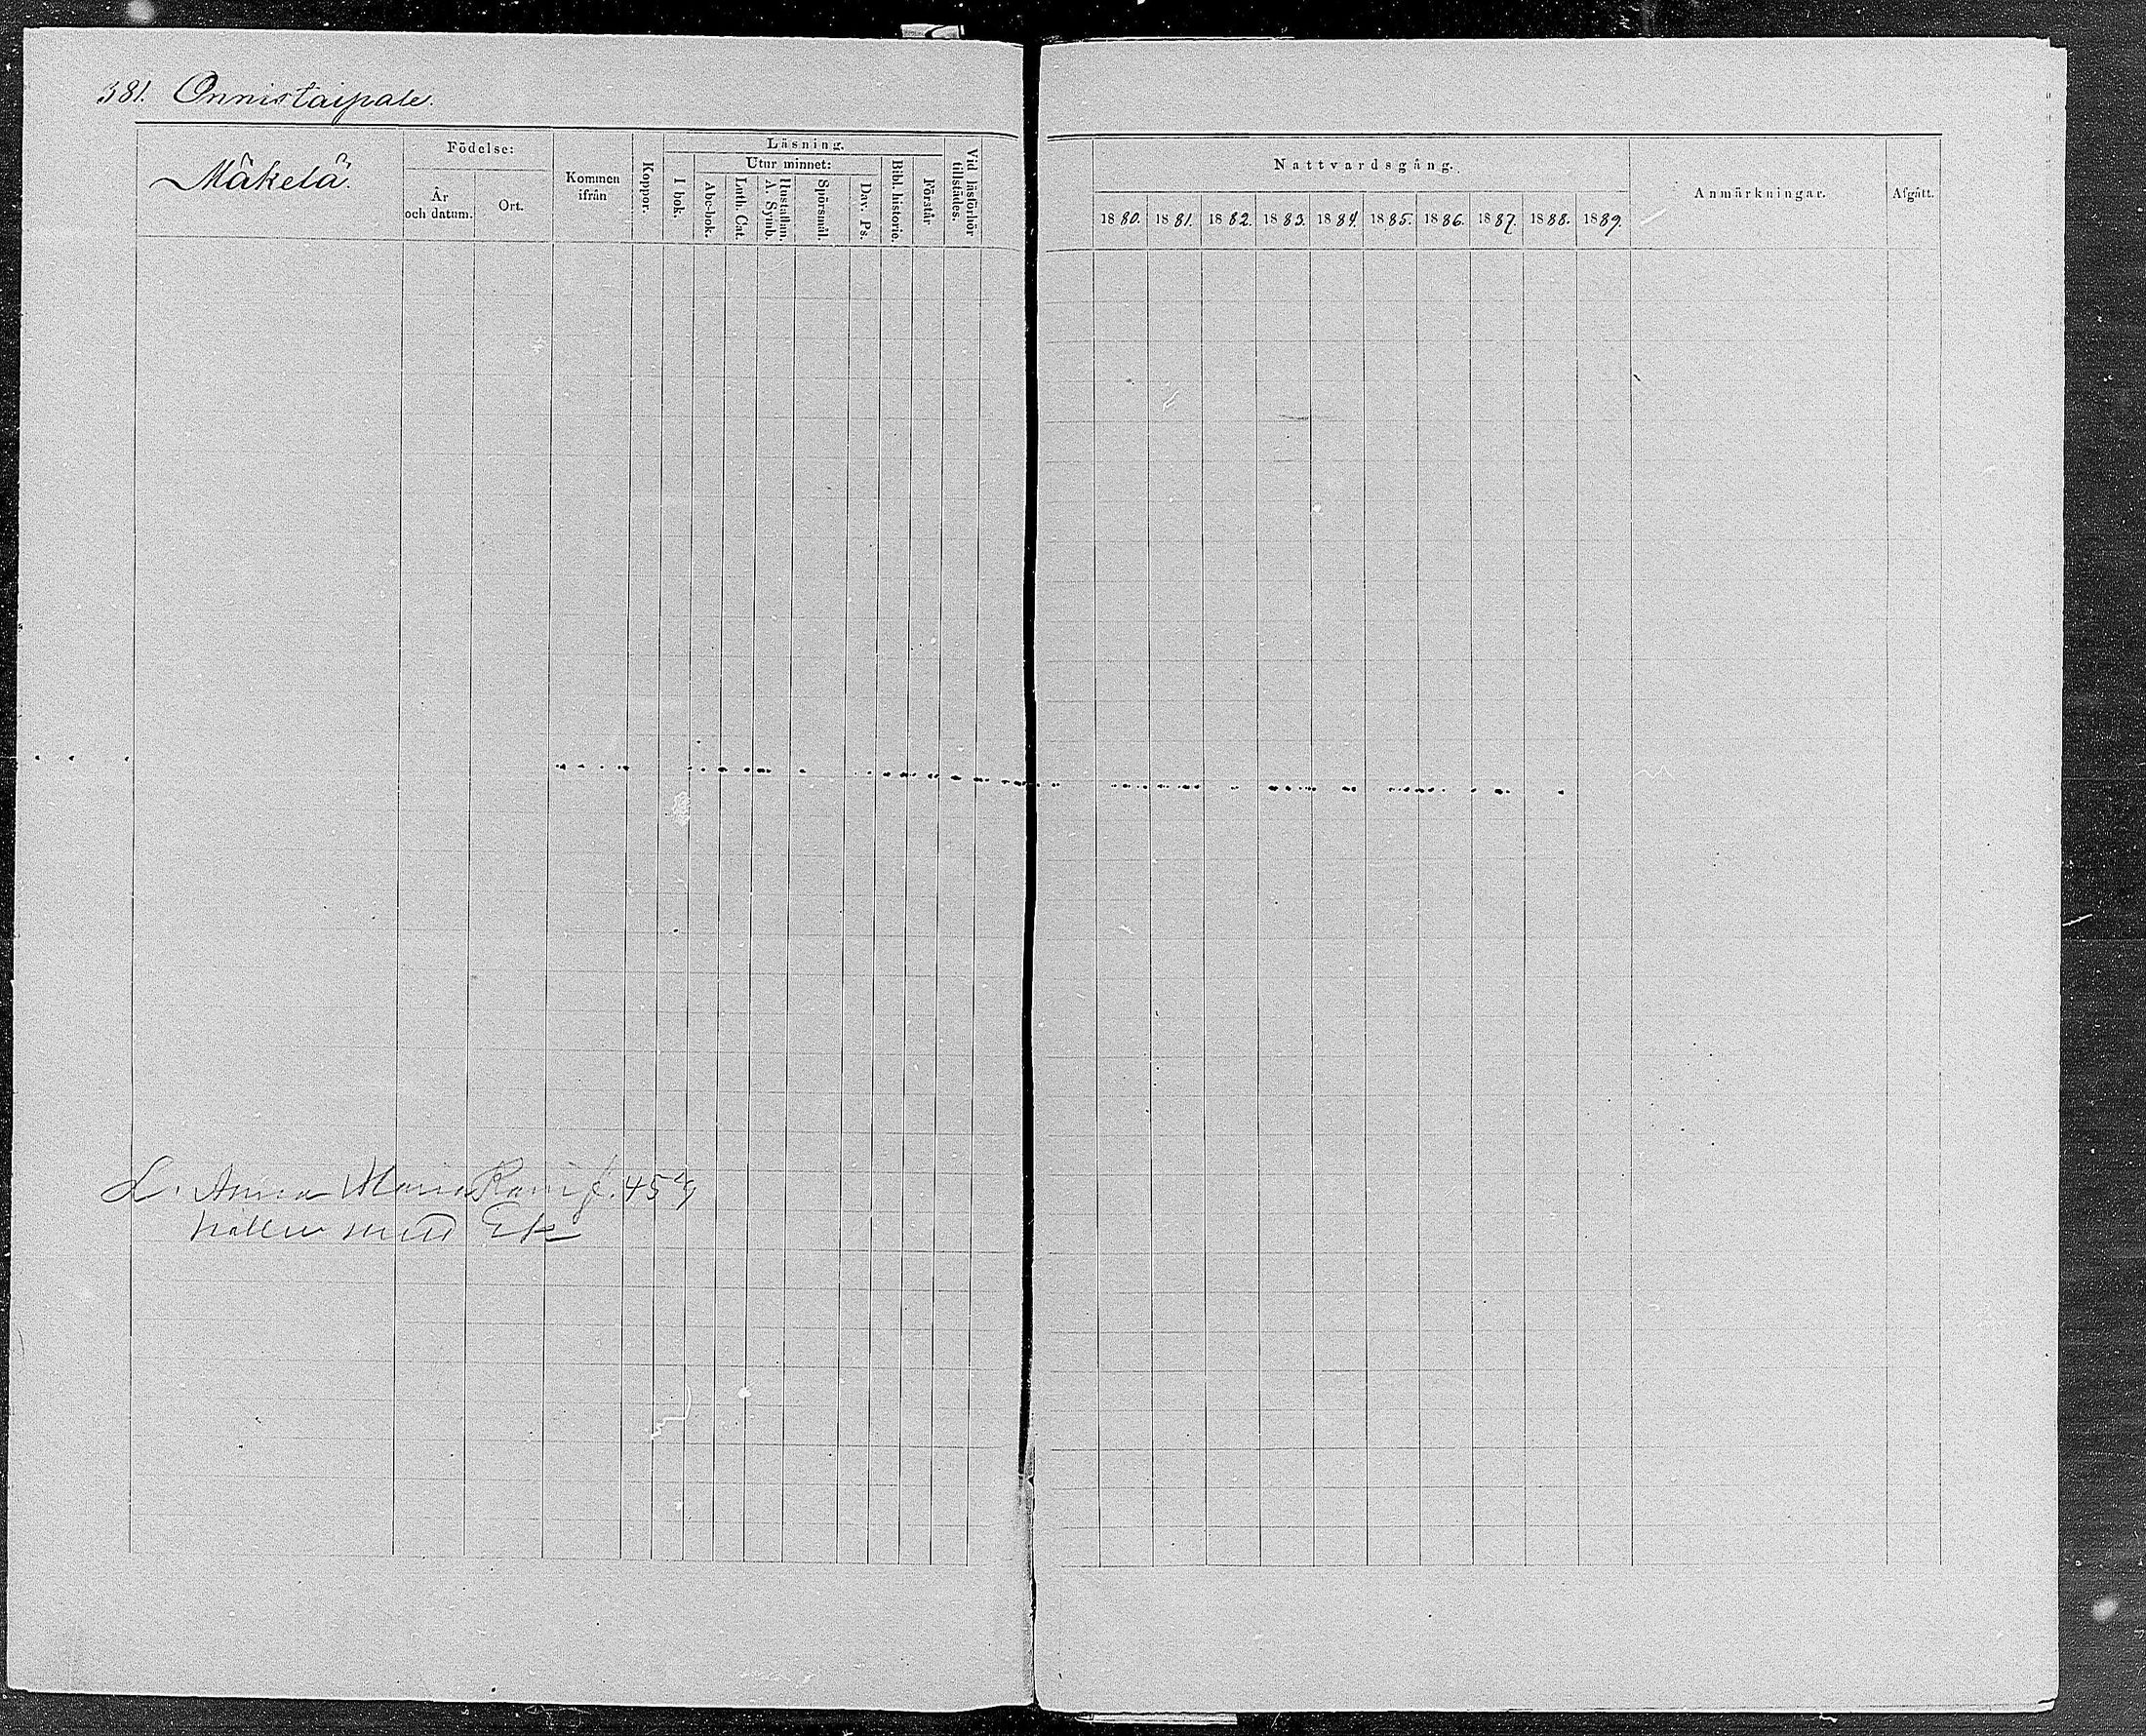 581. Onnistaipale.
Mäkelä.
Födelse:
År och datum.
Ort.
Kommen ifrån
Koppor.
Läsning.
I bok.
Utur minnet:
Abc-bok.
Luth. Cat.
Hustaflan. A. Symb.
Spörsmål.
Dav. Ps.
Bibl. historie.
Förstår
Vid läsförhör tillstädes.
Nattvardsgång.
1880. 1881. 1882. 1883. 1884. 1885. 1886. 1887. 1888. 1889.
Anmärkningar.
Afgått.
L. Anna Maria f. 45
med Ek